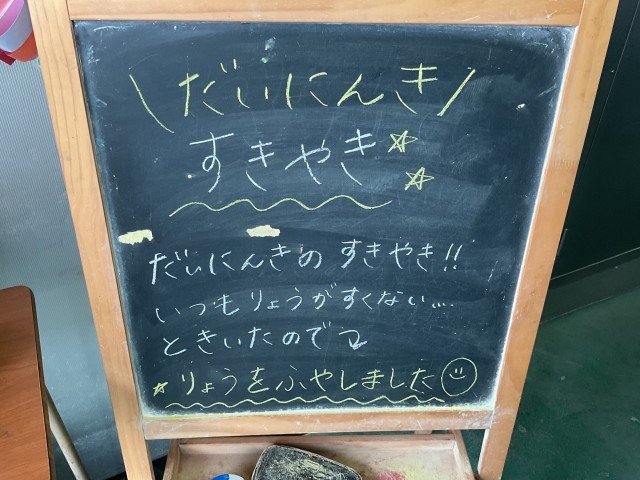 \だいにんき/
すきやき☆
☆
だいにんきの すきやき!!
いつもりょうがすくない...
ときいたので
☆りょうをふやしました☺